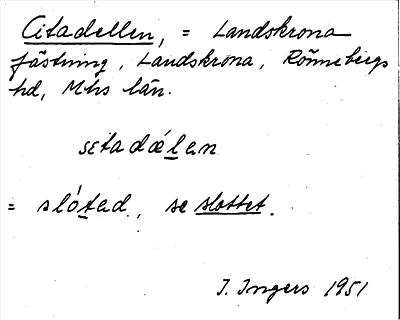 Citadellen, = Landskrona
fästning, Landskrona, Rönnebergs
hd, Mhs län.
setadǽlen
= slótad, se slottet.
I. Ingers 1951